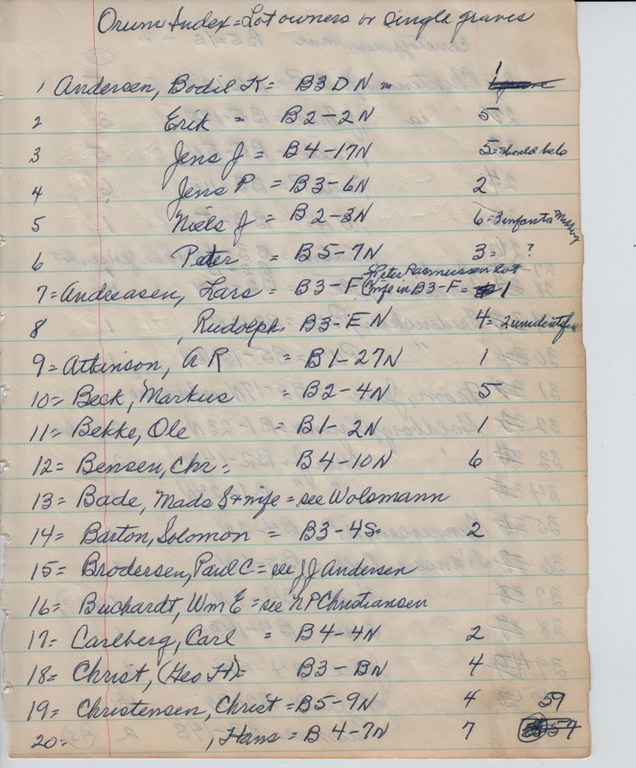 Orum Index = Lot owners or single graves
1 Andersen, Bodil K = B3 D N = 1
2 Erik = B2-2N 5
3 Jens J = B4-17N 5 = should be 6
4 Jens P = B3-6N 2
5 Niels J = B2-3N 6 = 3 infants missing
6 Peter = B5-7N 3 = ?
7 = Andreasen, Lars = B3-F Peter Rasmussen lot
wife in B3-F = 1
8 , Rudolph B3-E N 4 = 2 unidentified
9 = Atkinson, A R = B1-27N 1
10 = Beck, Markus = B2-4N 5
11 = Bekke, Ole = B1-2N 1
12 = Bensen, Chr = B4-10N 6
13 = Bade, Mads & wife = see Wolsmann
14 = Barton, Solomon = B3-4S 2
15 = Brodersen, Paul C = see J J Andersen
16 = Buchardt, Wm E = see N P Christiansen
17 = Carlberg, Carl = B4-4N 2
18 = Christ, (Geo H) = B3-BN 4
19 = Christensen, Christ = B5-9N 4 59
20 = , Hans = B4-7N 7 57